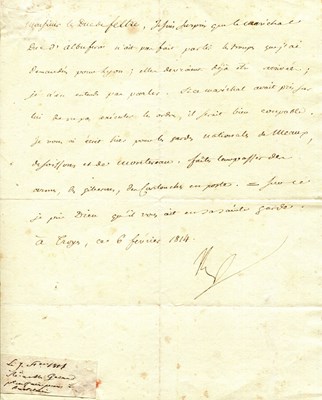 Monsieur le Duc de feltre, Je suis surpris que le maréchal
Duc d'albufera n'ait pas fait partir les troupes que j'ai
demandées pour Lyon; elles devraient déjà être arrivées;
je n'en entends pas parler. Si ce maréchal avait pris sur
lui de ne pas exécuter les ordres, il serait bien coupable.
Je vous ai écrit hier pour les gardes nationales de Meaux,
de Soissons et de Montereau. faites leur passer des
armes, des gibernes, des Cartouches en poste. Sur ce
je prie Dieu qu'il vous ait en sa sainte garde.
à Troyes, ce 6 février 1814.
Le 7